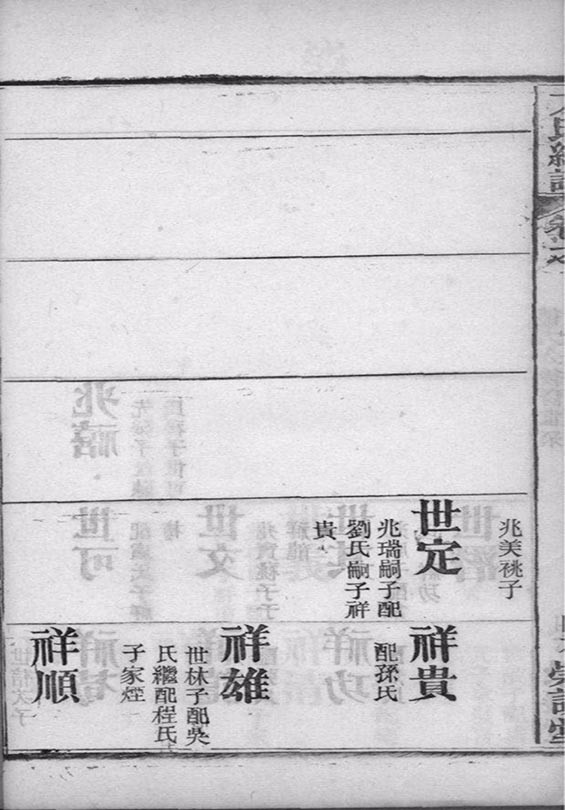 氏經譜
兆美祧子
世定
兆瑞嗣子配
劉氏嗣子祥
貴
祥貴
配孫氏
祥雄
世林子配吳
氏繼配程氏
子家煙
祥順